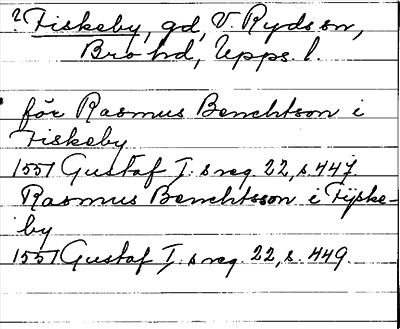 ? Fiskeby, gd, V. Ryds sn,
Bro hd, Upps. l.
för Rasmus Benchtson i
Fiskeby
1557 Gustaf I:s reg. 22, s. 447.
Rasmus Benchtsson i Fijske-
by
1557 Gustaf I:s reg. 22, s. 449.